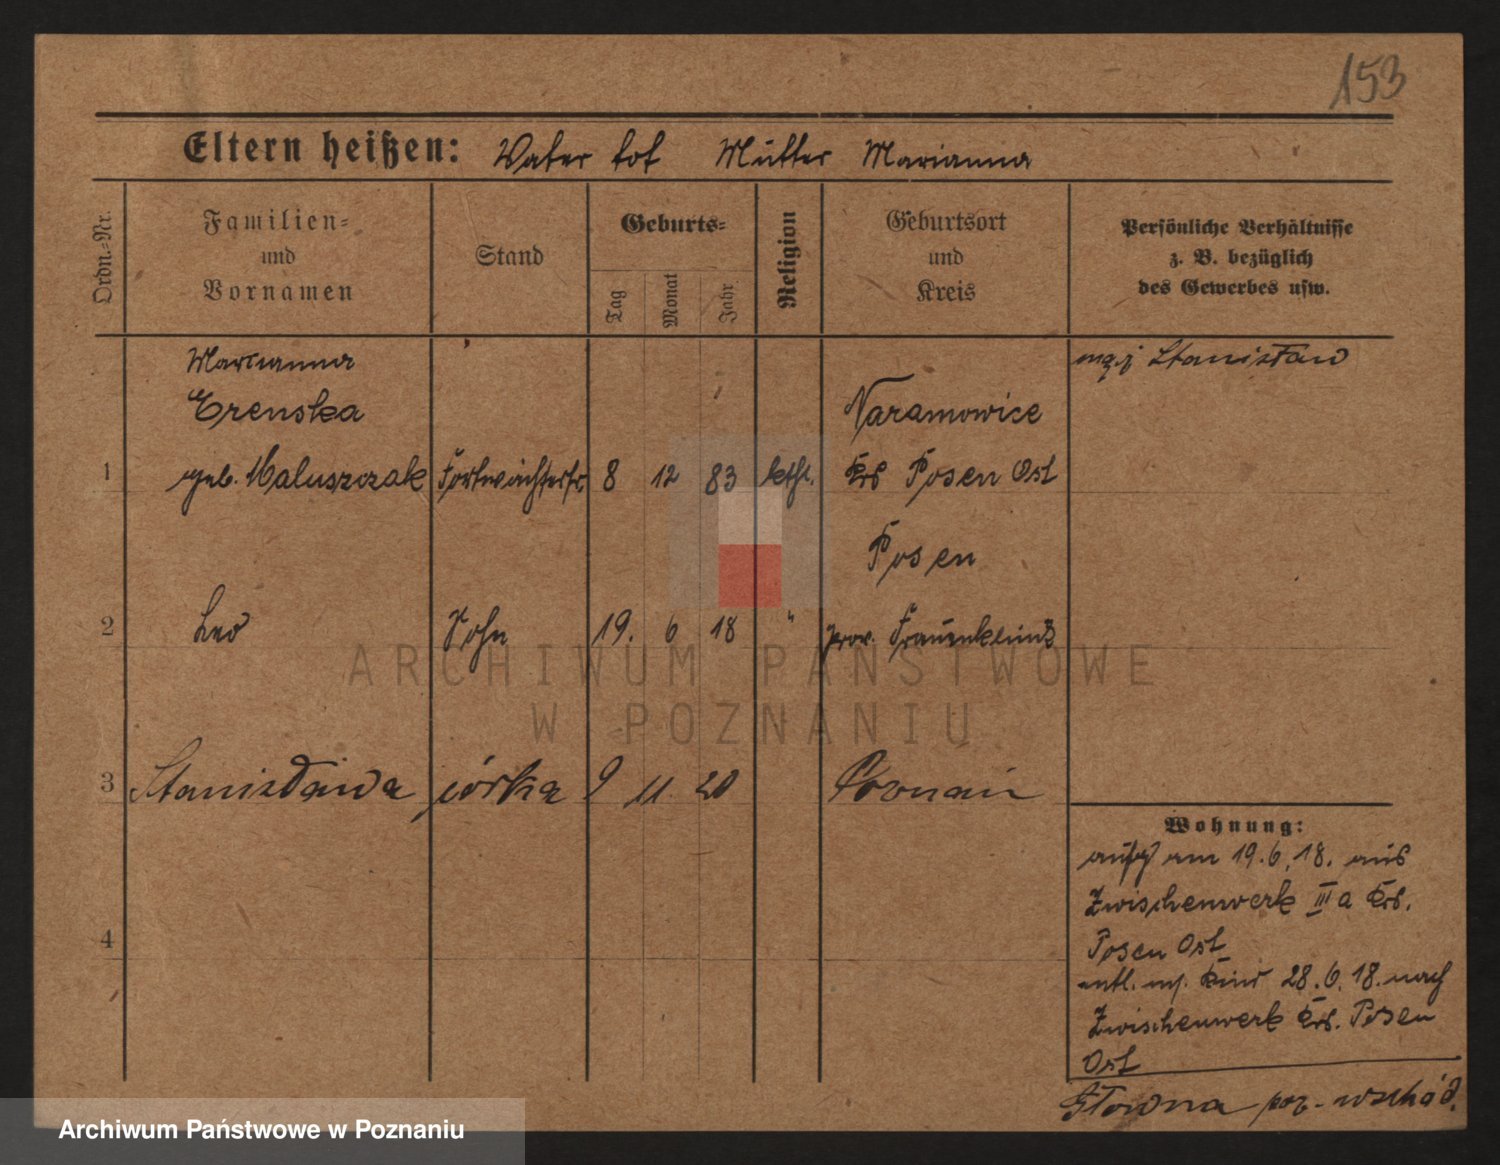 153
Eltern heißen: Vater tot Mutter Marianna
Ordn.-Nr.
Familien-
und
Vornamen
Stand
Geburts-
Tag
Monat
Jahr
Religion
Geburtsort
und
Kreis
Persönliche Verhältnisse
z. B. bezüglich
des Gewerbes usw.
Marianna
mąż Stanisław
Erenska
Naramowice
1 geb. Maluszczak Fortwächterfr. 8 12 83 kath. Krs Posen Ost
Posen
2 Leo Sohn 19. 6 18 " prov. Frauenklinik
ARCHIWUM PAŃSTWOWE
W POZNANIU
3 Stanisława córka 9 11 20 Poznań
Wohnung:
am 19.6.18. aus
Zwischenwerk III a Krs.
4
Posen Ost
entl. m. Kind 28.6.18. nach
Zwischenwerk Krs. Posen
Ost
Główna poz. wschód.
Archiwum Państwowe w Poznaniu